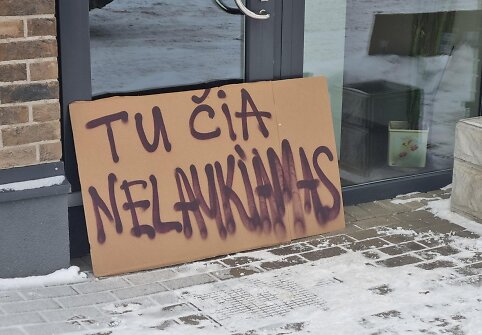 TU ČIA
NELAUKIAMAS